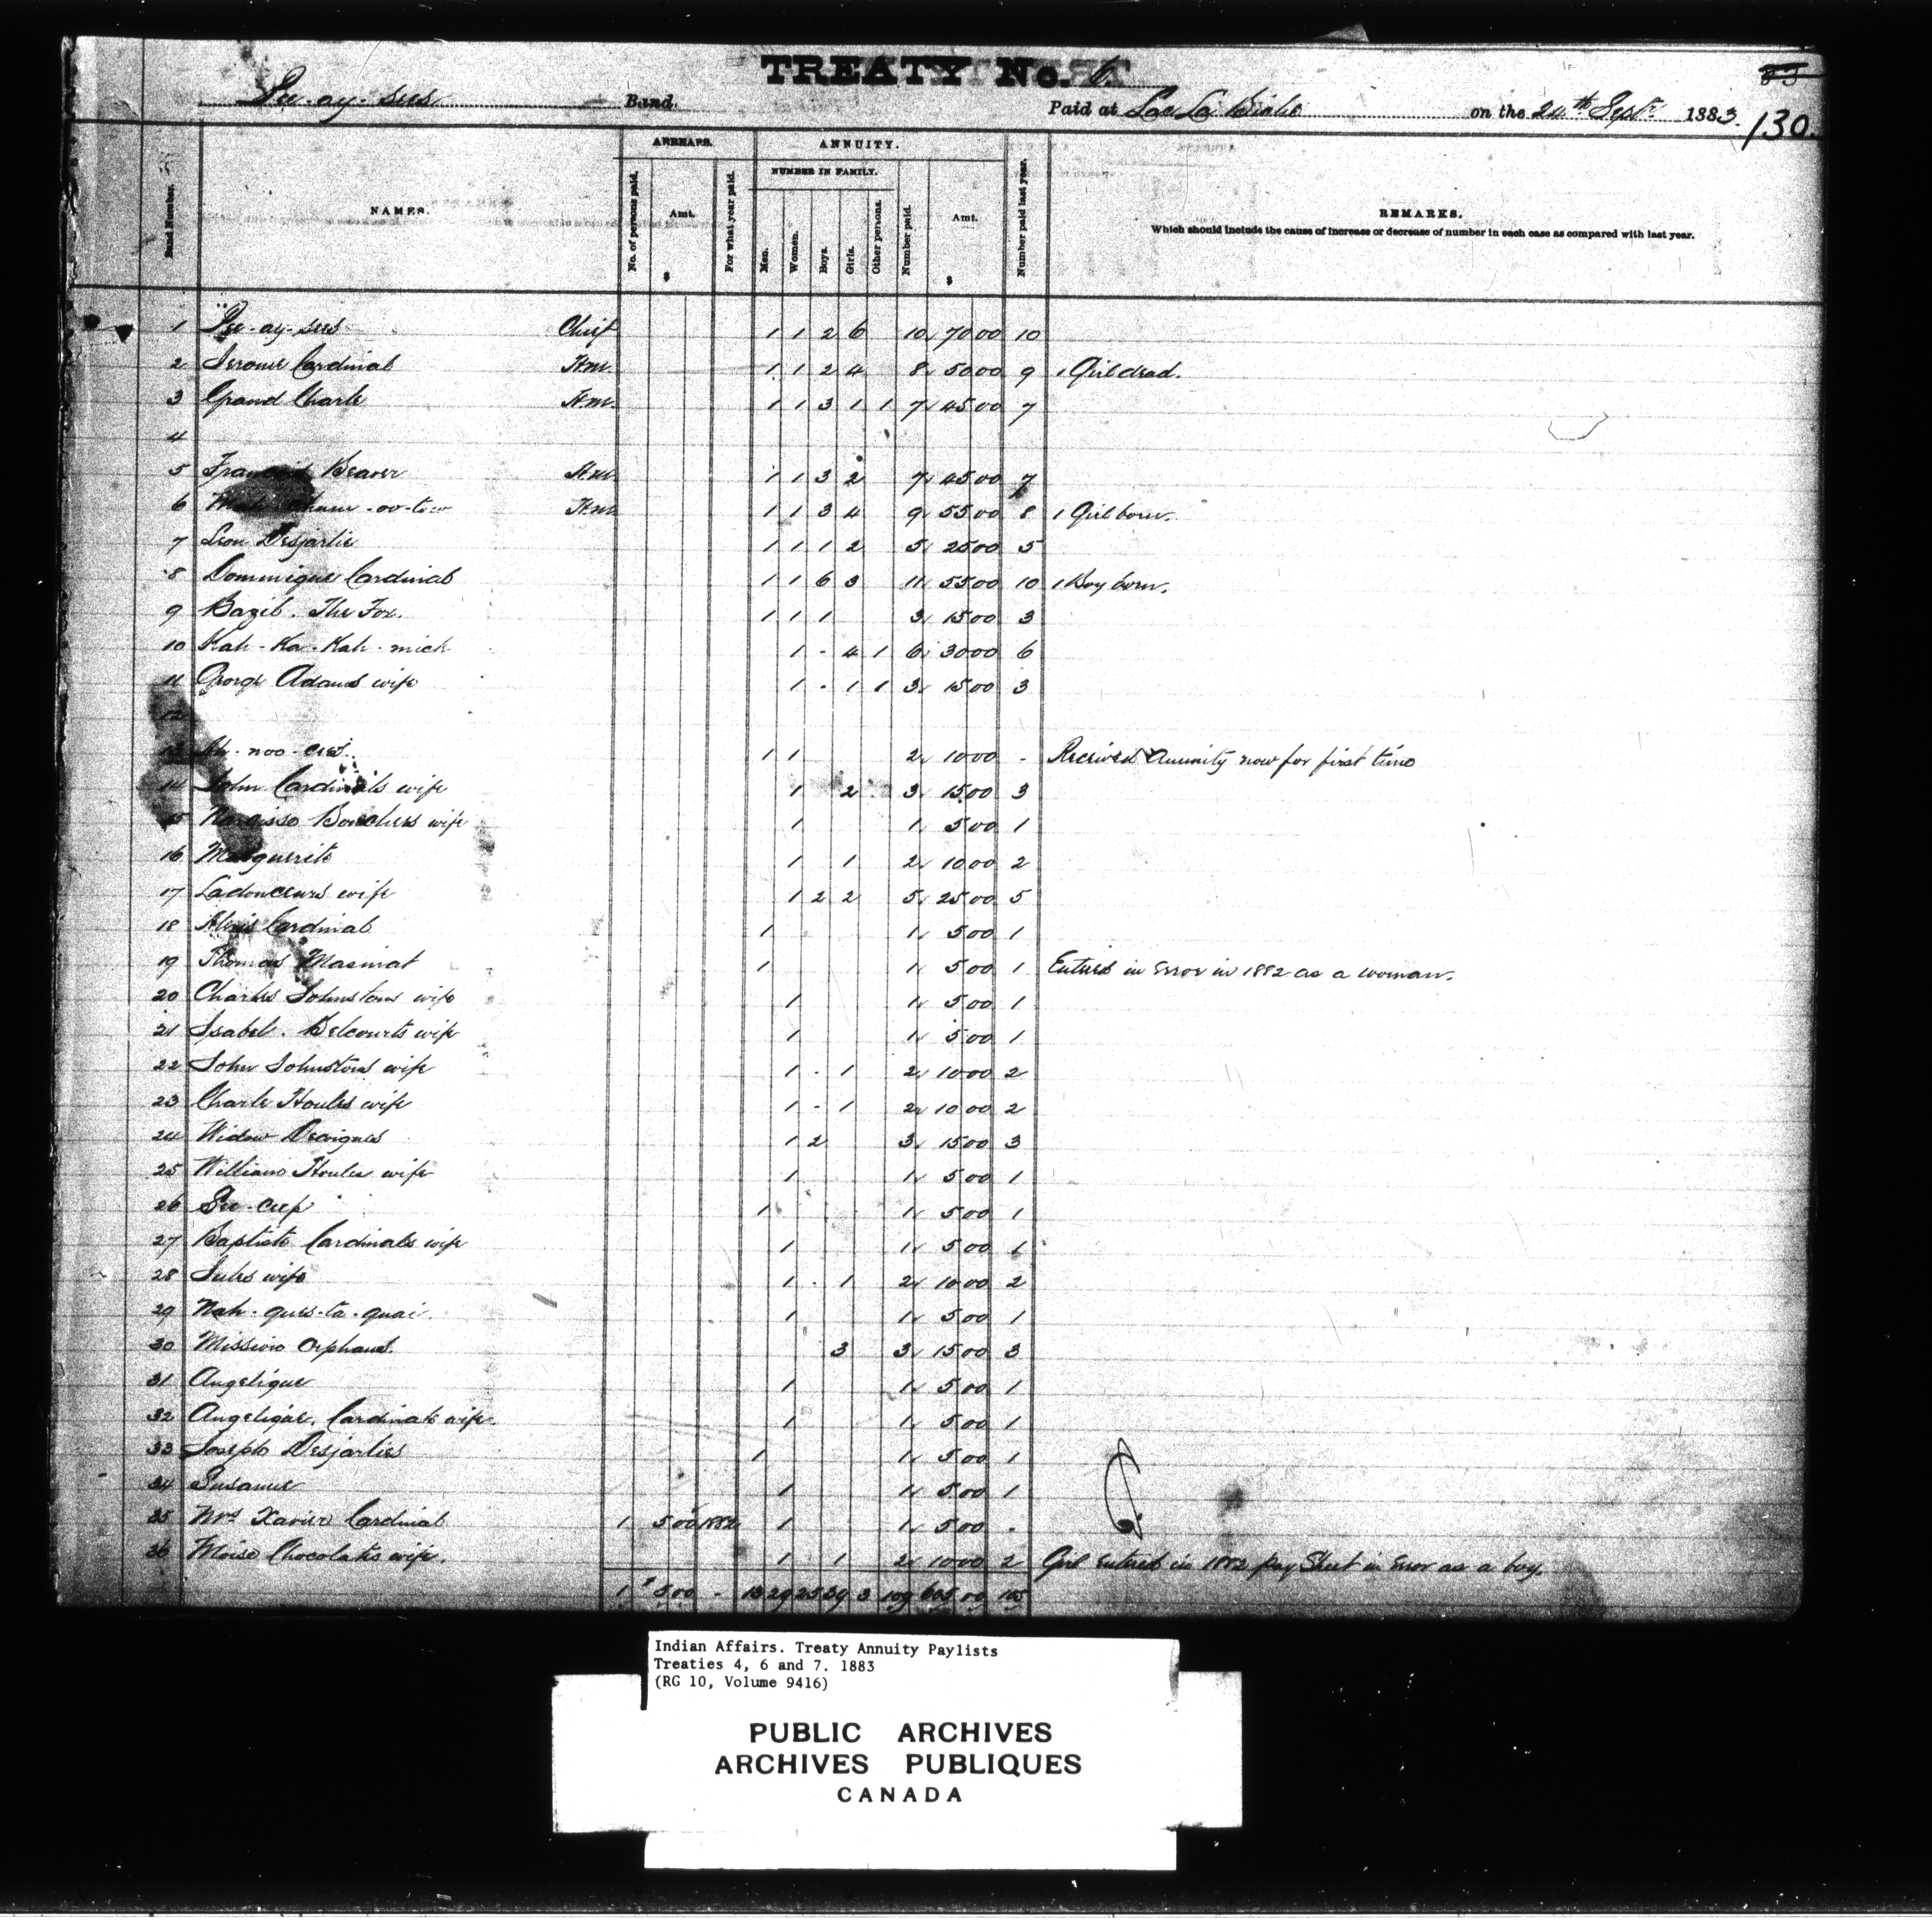 TREATY No. 6.
83
Pee-ay-sees Band. Paid at Lac La Biche on the 24th Sept. 1883.
130.
Band Number. NAMES. ARREARS. No. of persons paid. Amt. $ For what year paid. ANNUITY. NUMBER IN FAMILY. Men. Women. Boys. Girls. Other persons. Number paid. Amt. $ Number paid last year. REMARKS.
Which should include the cause of increase or decrease of number in each case as compared with last year.
1 Pee-ay-sees Chief 1 1 2 6 10 70 00 10
2 Jerome Cardinal H.m. 1 1 2 4 8 50 00 9 1 Girl dead.
3 Grand Charle H.m. 1 1 3 1 1 7 45 00 7
4
5 Francois Beaver H.m. 1 1 3 2 7 45 00 7
6 -oo-tow H.m. 1 1 3 4 9 55 00 8 1 Girl born.
7 Leon Desjarlie 1 1 1 2 5 25 00 5
8 Dominique Cardinal 1 1 6 3 11 55 00 10 1 Boy born.
9 Bazil. The Fox. 1 1 1 3 15 00 3
10 Kah-Ka-Kah-mich 1 - 4 1 6 30 00 6
11 George Adams wife 1 - 1 1 3 15 00 3
12
13 -noo- 1 1 2 10 00 - Received Annuity now for first time
14 John Cardinals wife 1 2 3 15 00 3
15 Narcisse Bouchers wife 1 1 5 00 1
16 Marguerite 1 1 2 10 00 2
17 Ladouceurs wife 1 2 2 5 25 00 5
18 Alexis Cardinal 1 1 5 00 1
19 Thomas Masinat 1 1 5 00 1 Entered in Error in 1882 as a woman.
20 Charles Johnstons wife 1 1 5 00 1
21 Isabel. Belcourts wife 1 1 5 00 1
22 John Johnstons wife 1 - 1 2 10 00 2
23 Charle Houles wife 1 - 1 2 10 00 2
24 Widow Desaignes 1 2 3 15 00 3
25 William Houles wife 1 1 5 00 1
26 See-ceep 1 1 5 00 1
27 Baptiste Cardinals wife 1 1 5 00 1
28 Jules wife 1 - 1 2 10 00 2
29 Nah-gues-ta-quai. 1 1 5 00 1
30 Mission Orphans. 3 3 15 00 3
31 Angelique 1 1 5 00 1
32 Angelique. Cardinals wife 1 1 5 00 1
33 Joseph Desjarlies 1 1 5 00 1
34 Susanne 1 1 5 00 1
35 Mrs Xavier Cardinal 1 5 00 1882 1 1 5 00 -
36 Moise Chocolates wife. 1 1 2 10 00 2 Girl entered in 1882 Pay Sheet in Error as a boy.
1 $ 5 00 - 13 29 25 39 3 109 605 00 105
Indian Affairs. Treaty Annuity Paylists
Treaties 4, 6 and 7. 1883
(RG 10, Volume 9416)
PUBLIC ARCHIVES
ARCHIVES PUBLIQUES
CANADA